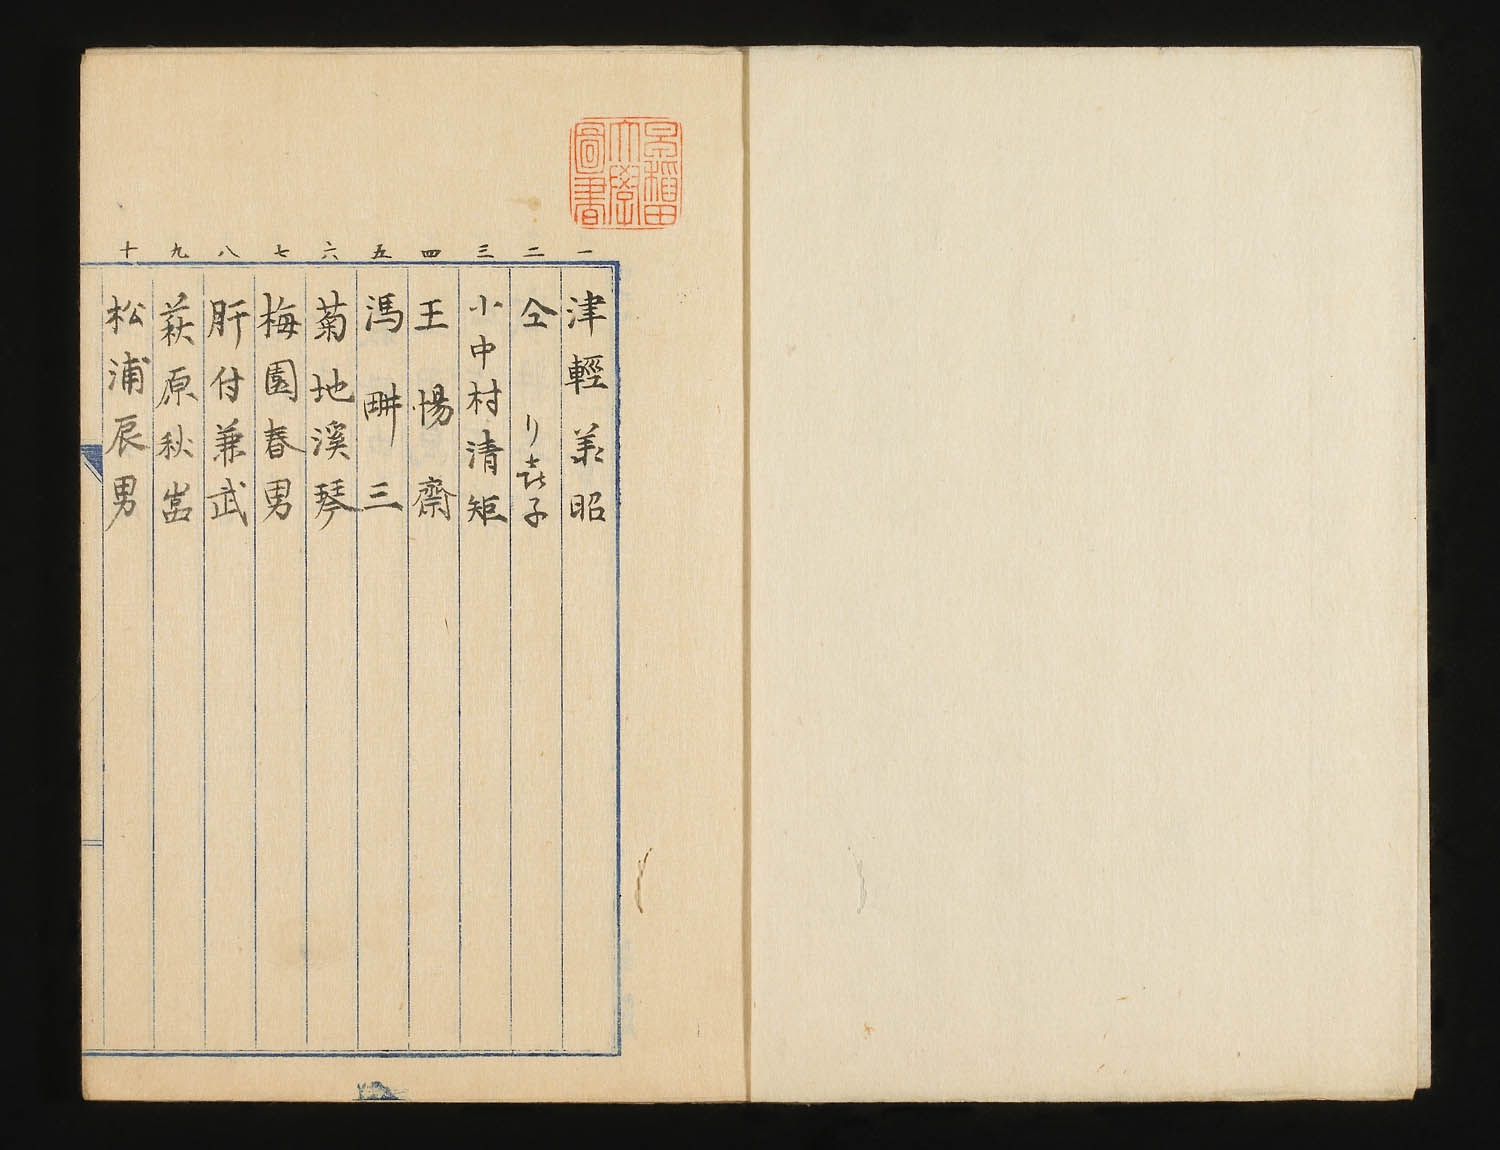 早稻田
大學
圖書
一 津輕承昭
二 仝 り喜子
三 小中村清矩
四 王惕齋
五 馮畊三
六 菊地溪琴
七 梅園春男
八 肝付兼武
九 萩原秋嵓
十 松浦辰男